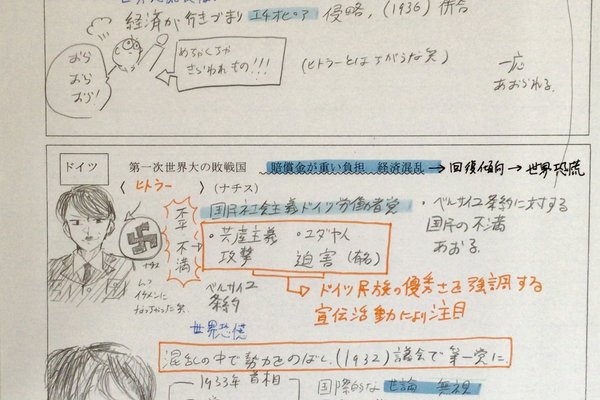 経済が行きづまり エチオピア 侵略,(1936) 併合
おら
おら
おら!
めちゃくちゃ
きらわれもの!!!
(ヒトラーとはちがうな笑)
一応
あおられる.
ドイツ
第一次世界大の敗戦国 賠償金が重い負担 経済混乱→回復傾向→世界恐慌
〈 ヒトラー 〉(ナチス)
国民社会主義ドイツ労働者党
不平
不満
・共産主義
攻撃
・ユダヤ人
迫害(有名)
・ベルサイユ条約に対する
国民の不満
あおる.
ナチス
イケメンに
なっちゃった笑
ベルサイユ
条約
世界恐慌
ドイツ民族の優秀さを強調する
宣伝活動により注目
混乱の中で勢力をのばし,(1932)議会で第一党に.
1933年 首相
国際的な 世論 無視